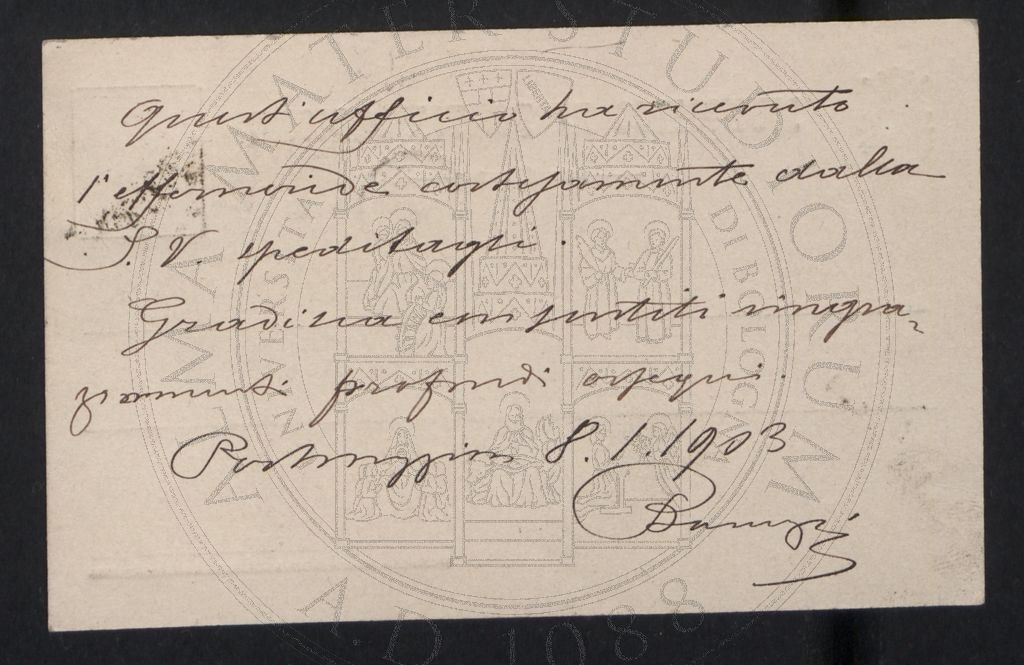 Quest'ufficio ha ricevuto
l'effemeride cortesemente dalla
S. V. speditagli.
Gradisca coi sentiti ringra-
ziamenti profondi ossequi.
8.1.1903
ALMA MATER STUDIORUM
A.D. 1088